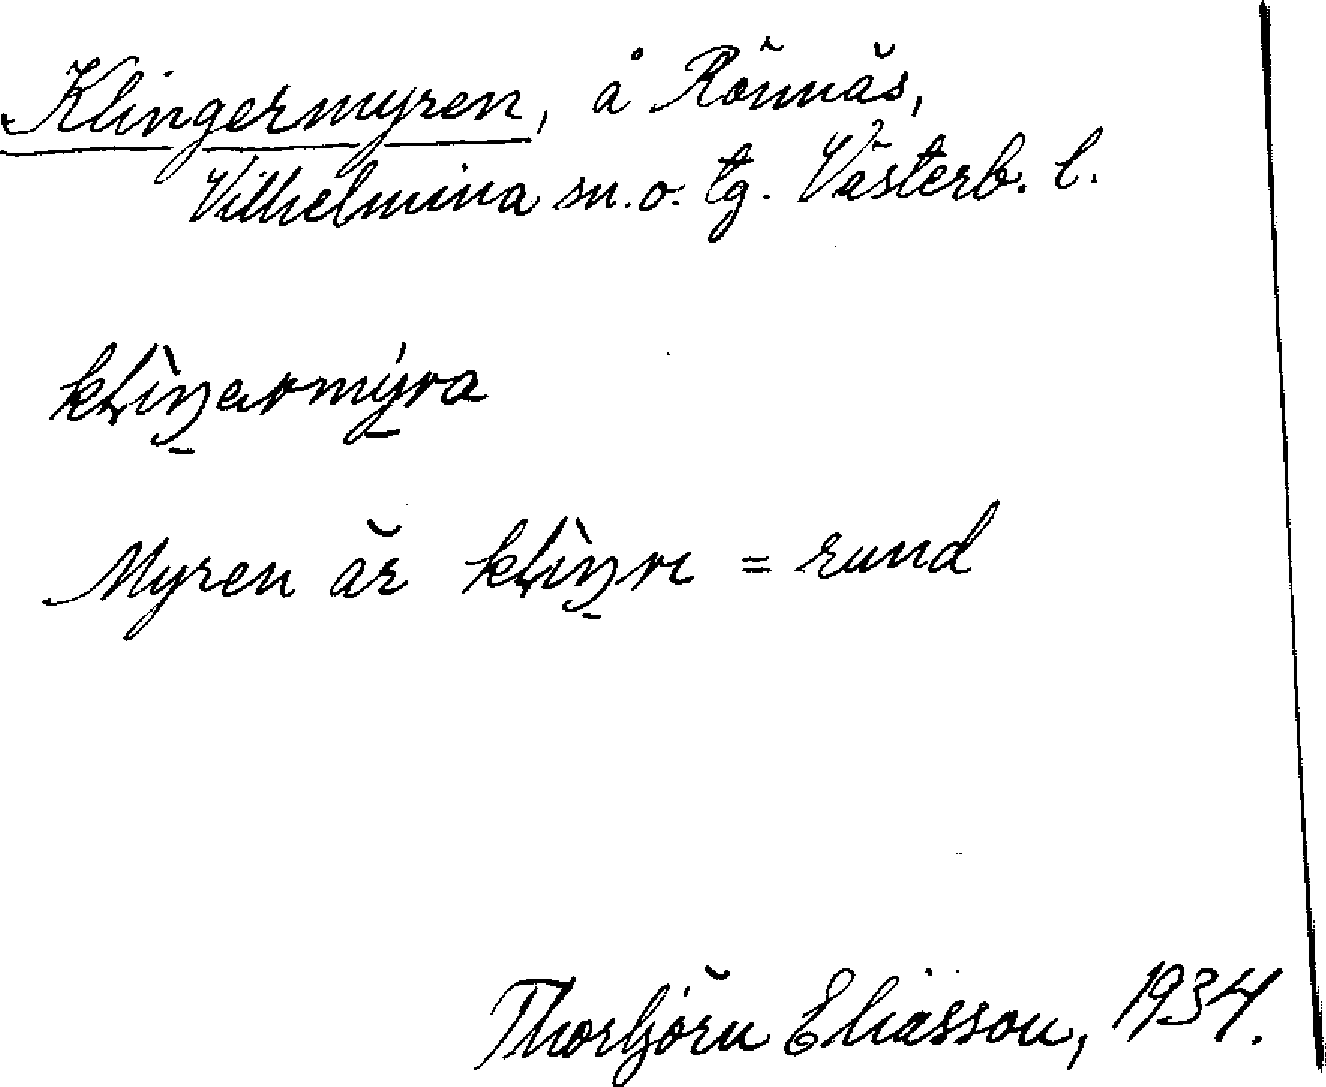 Klingermyren, å Rönnäs,
Vilhelmina sn. o. tg. Västerb. l.
klìŋərmýra
Myren är klìŋrɩ = rund
Thorbjörn Eliasson, 1934.